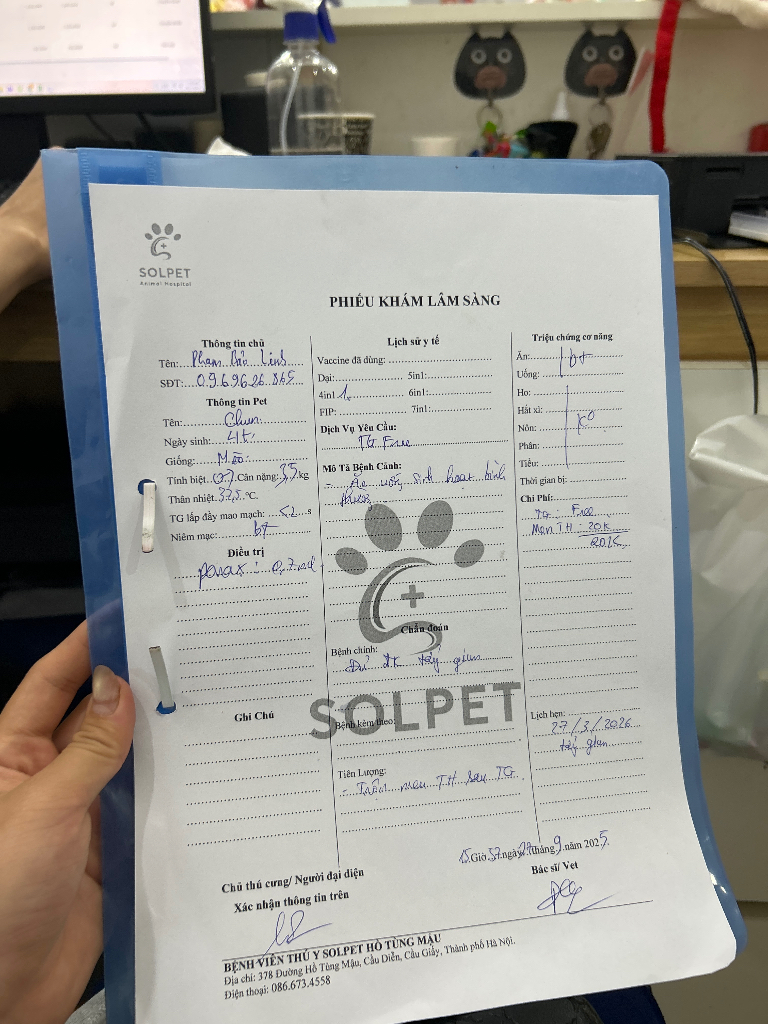 SOLPET
Animal Hospital
PHIẾU KHÁM LÂM SÀNG
Thông tin chủ
Tên: Phạm Bảo Linh
SĐT: 0969626865
Thông tin Pet
Tên: Chun
Ngày sinh: 4t
Giống: Mèo
Tính biệt Cân nặng: 3,5 kg
Thân nhiệt 37,5 °C
TG lấp đầy mao mạch: <2 s
Niêm mạc: bt
Điều trị
0,7 ml
Ghi Chú
Lịch sử y tế
Vaccine đã dùng:
Dại: 5in1:
4in1 6in1:
FIP: 7in1:
Dịch Vụ Yêu Cầu:
TG Free
Mô Tả Bệnh Cảnh:
- Ăn uống sinh hoạt bình
thường
Chẩn đoán
Bệnh chính:
Đủ đk tẩy giun
SOLPET
Bệnh kèm theo:
Tiên Lượng:
- TH sau TG
Triệu chứng cơ năng
Ăn: bt
Uống:
Ho:
Hắt xì:
Nôn: ko
Phân:
Tiểu:
Thời gian bị:
Chi Phí:
TG: Free
Men TH: 20K
20K
Lịch hẹn:
27/3/2026
tẩy giun
15 Giờ 57 ngày 27 tháng 9 năm 2025
Chủ thú cưng/ Người đại diện
Xác nhận thông tin trên
Bác sĩ/ Vet
BỆNH VIỆN THÚ Y SOLPET HỒ TÙNG MẬU
Địa chỉ: 378 Đường Hồ Tùng Mậu, Cầu Diễn, Cầu Giấy, Thành phố Hà Nội.
Điện thoại: 086.673.4558